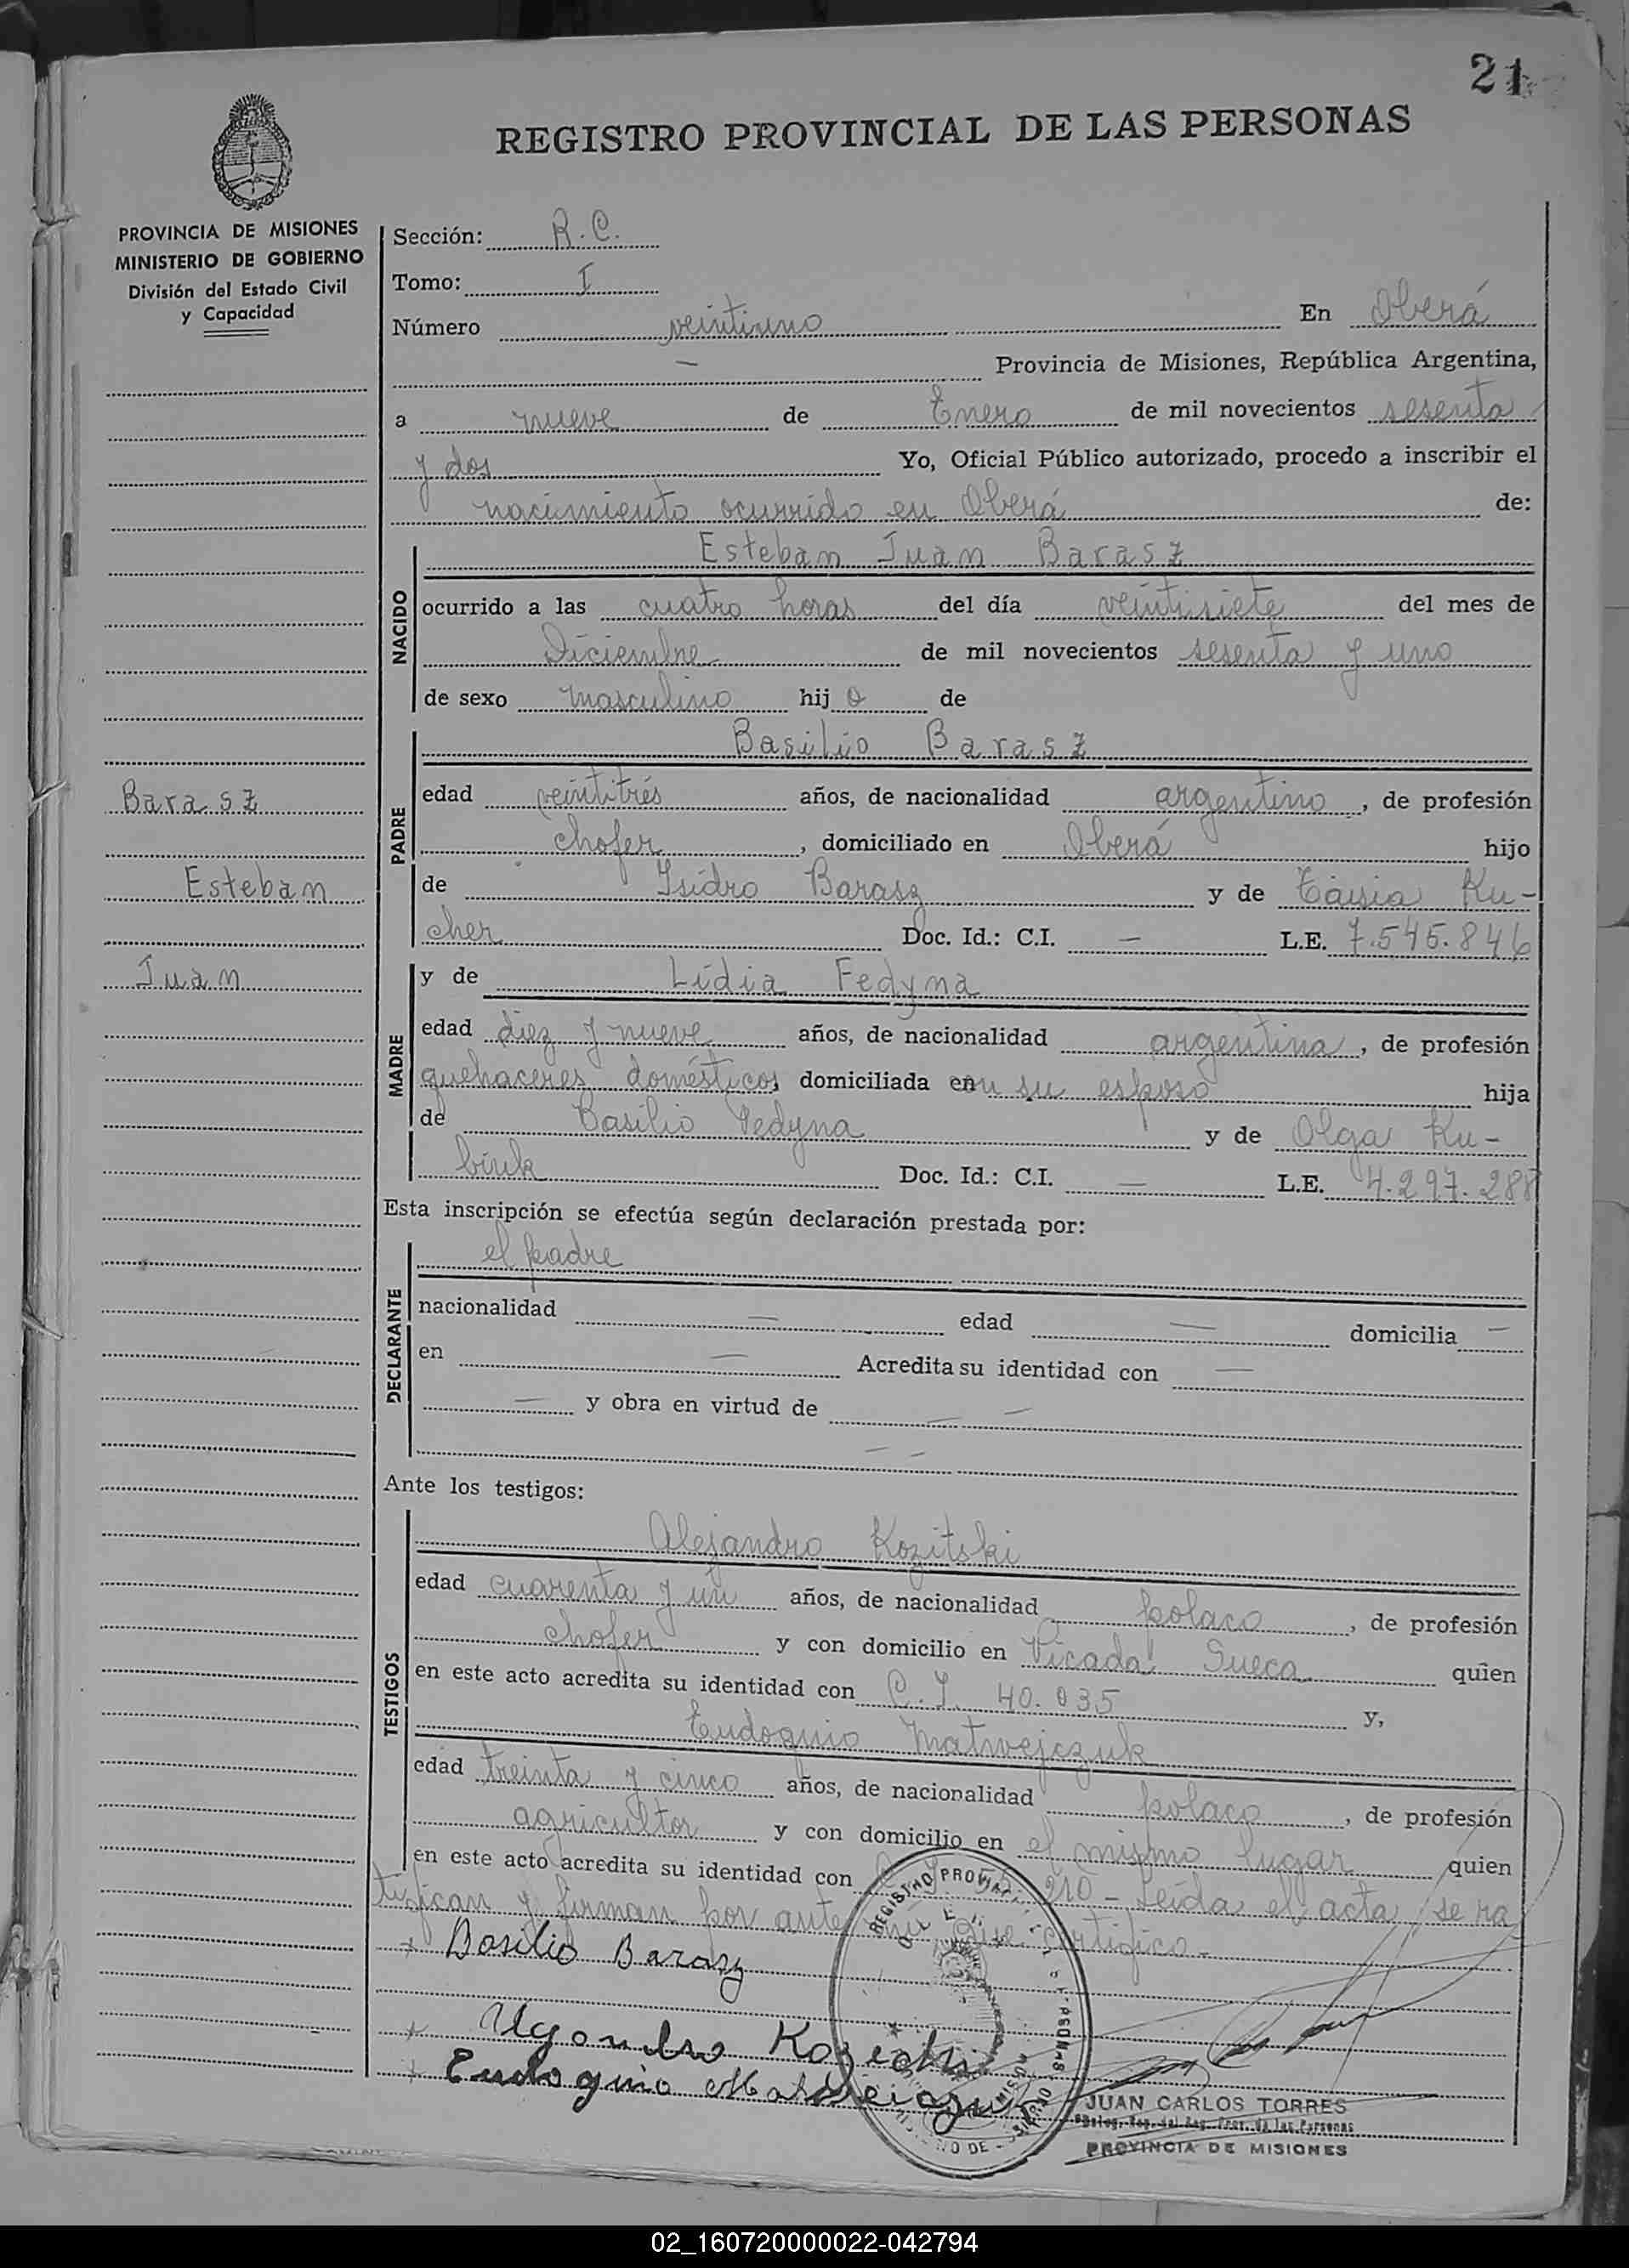 21
REGISTRO PROVINCIAL DE LAS PERSONAS
PROVINCIA DE MISIONES
MINISTERIO DE GOBIERNO
División del Estado Civil
y Capacidad
Sección: R.C.
Tomo: I
Número veintiuno En Oberá
— Provincia de Misiones, República Argentina,
a nueve de Enero de mil novecientos sesenta
y dos Yo, Oficial Público autorizado, procedo a inscribir el
nacimiento ocurrido en Oberá de:
NACIDO
Esteban Juan Barasz
ocurrido a las cuatro horas del día veintisiete del mes de
Diciembre de mil novecientos sesenta y uno
de sexo masculino hijo de
PADRE
Basilio Barasz
edad veintitrés años, de nacionalidad argentino, de profesión
chofer, domiciliado en Oberá hijo
de Isidro Barasz y de Taisia Ku-
cher Doc. Id.: C.I. — L.E. 7.545.846
Barasz
Esteban
Juan
MADRE
y de Lidia Fedyna
edad diez y nueve años, de nacionalidad argentina, de profesión
quehaceres domésticos, domiciliada en su esposo hija
de Basilio Fedyna y de Olga Ku-
biuk Doc. Id.: C.I. — L.E. 4.297.288
Esta inscripción se efectúa según declaración prestada por:
DECLARANTE
el padre
nacionalidad — edad — domicilia —
en — Acredita su identidad con —
— y obra en virtud de — —
— —
Ante los testigos:
TESTIGOS
Alejandro Kozitski
edad cuarenta y un años, de nacionalidad polaco, de profesión
chofer y con domicilio en Picada Sueca quien
en este acto acredita su identidad con C.I. 40.035 y,
Eudoquio Matwejczuk
edad treinta y cinco años, de nacionalidad polaco, de profesión
agricultor y con domicilio en el mismo lugar quien
en este acto acredita su identidad con 210 - Leida el acta, se ra
tifican y firman por ante mí que certifico -
x Basilio Barasz
x
x Eudoquio
REGISTRO
JUAN CARLOS TORRES
PROVINCIA DE MISIONES
02_160720000022-042794